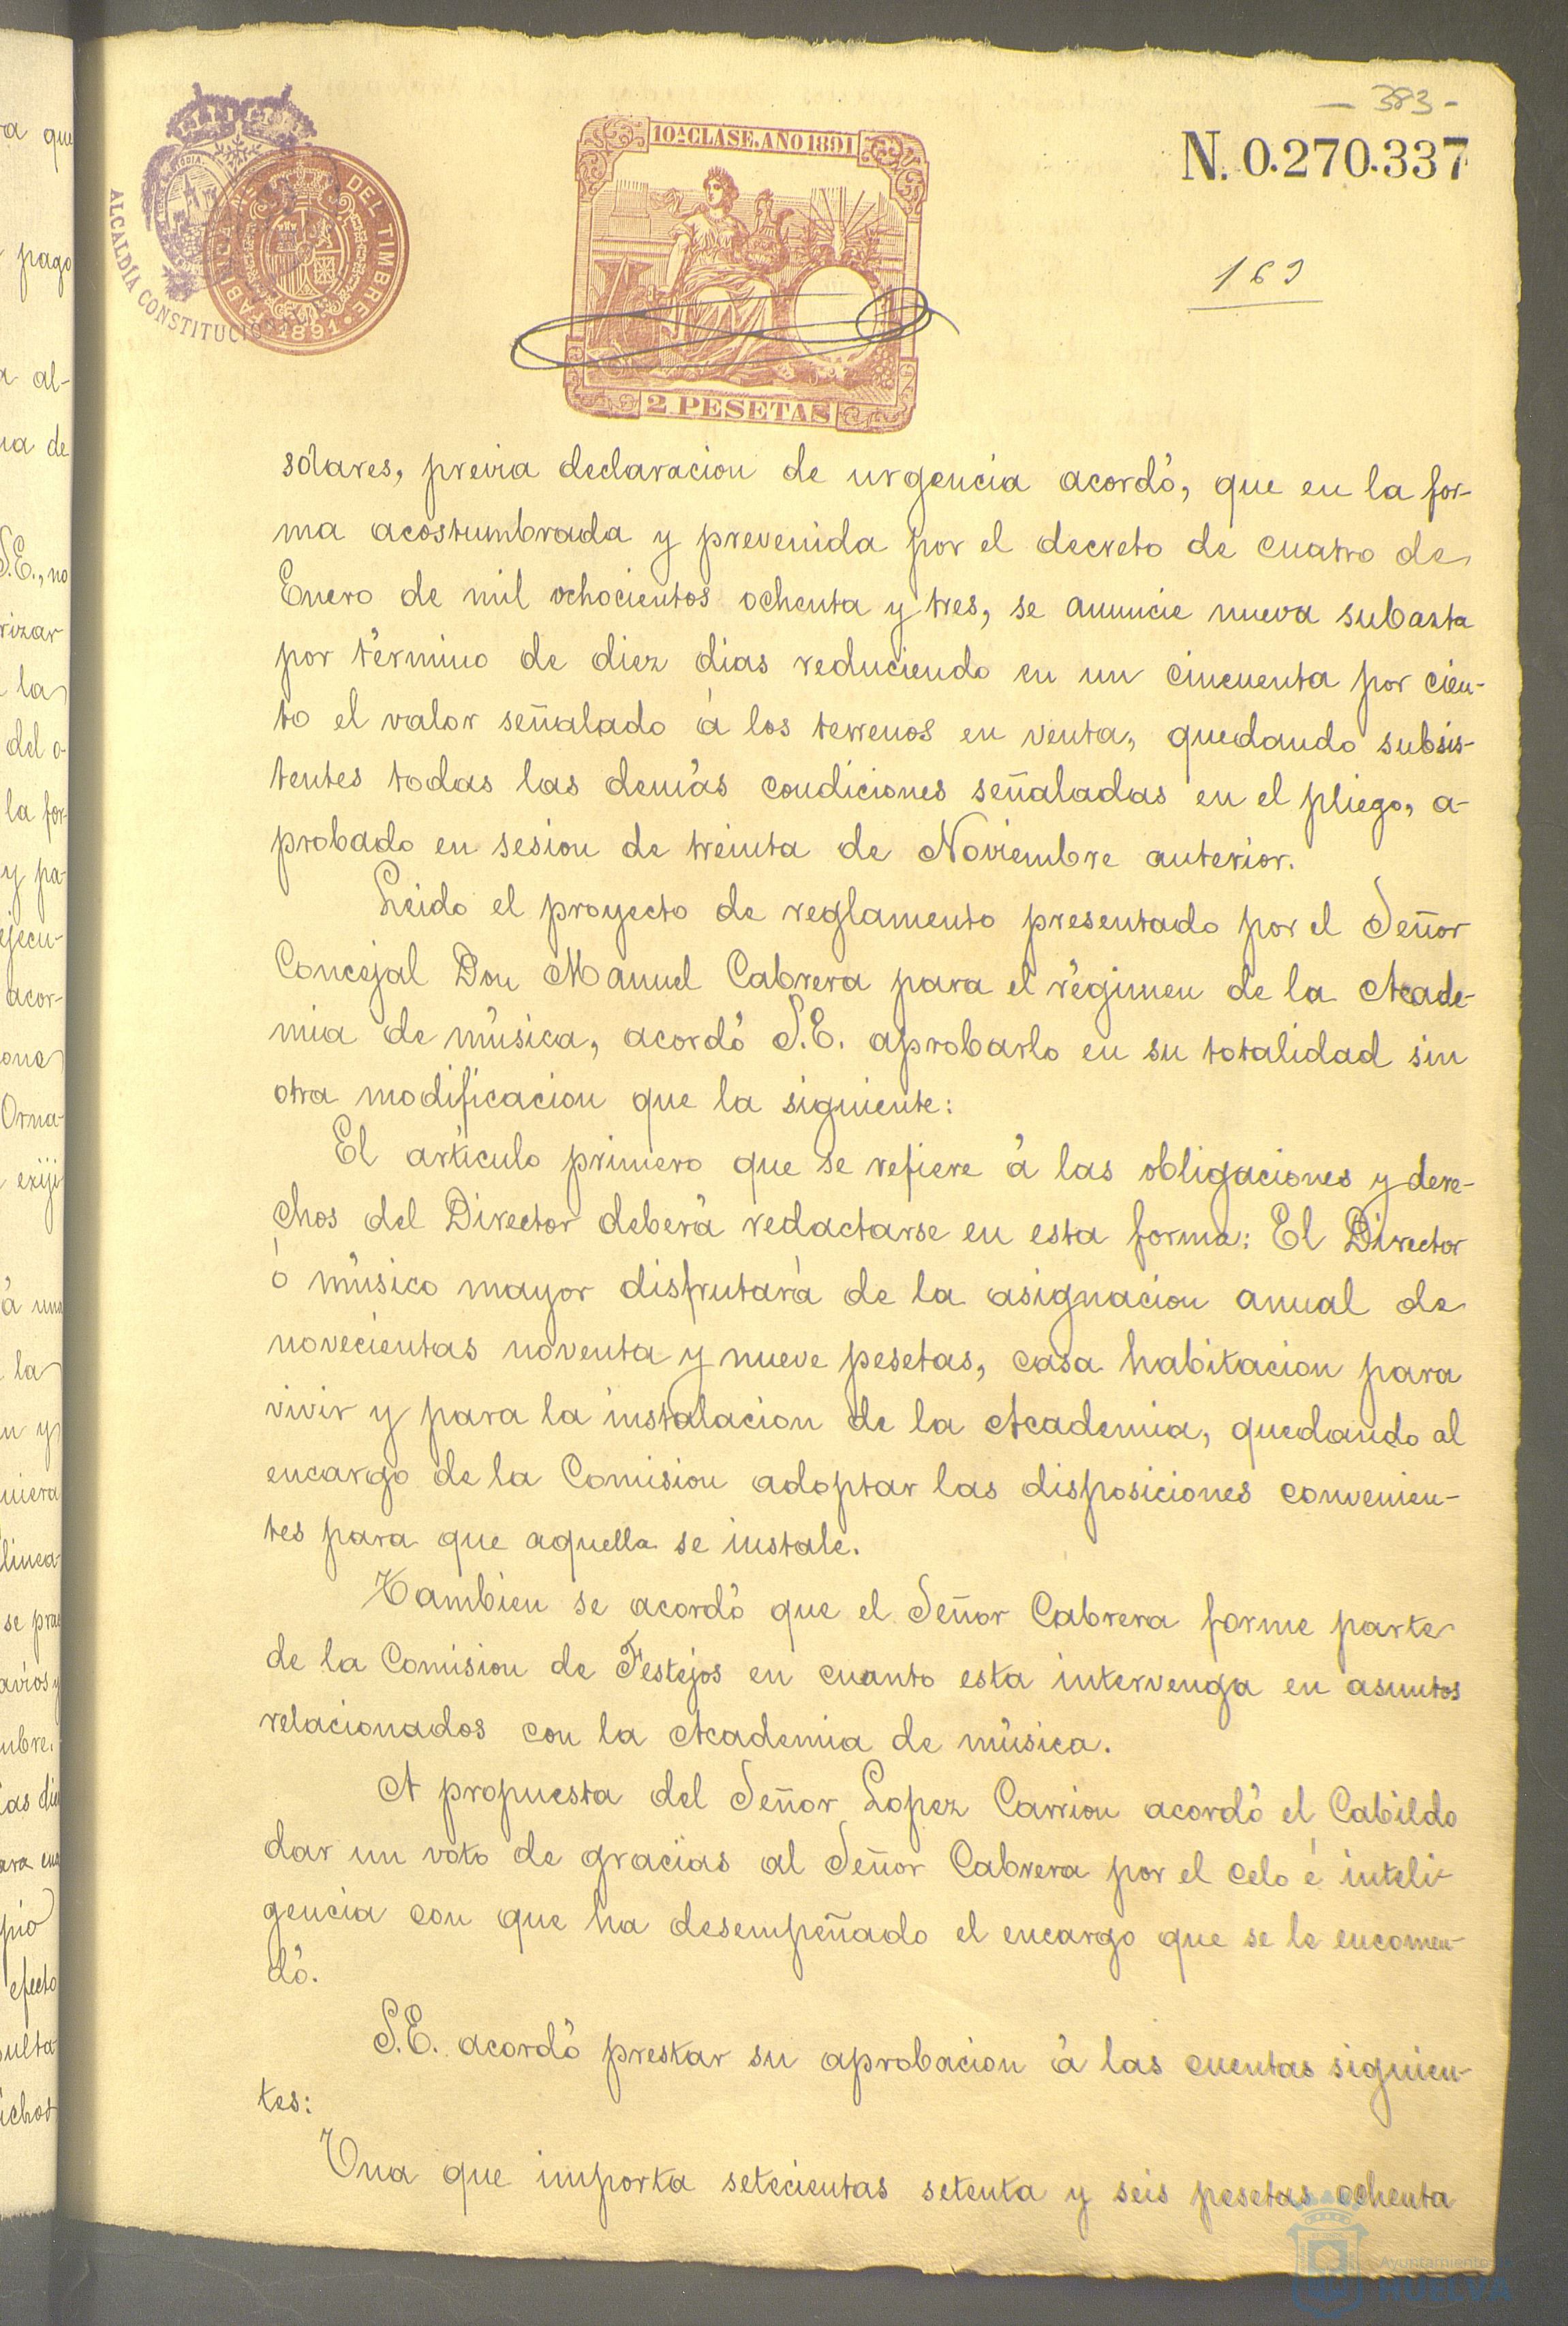 - 383 -
N. 0.270.337
10ª CLASE. AÑO 1891
2 PESETAS
ALCALDÍA CONSTITUCIO
DEL TIMBRE
1891
169
solares, previa declaracion de urgencia acordó, que en la for-
ma acostumbrada y prevenida por el decreto de cuatro de
Enero de mil ochocientos ochenta y tres, se anuncie nueva subasta
por término de diez dias reduciendo en un cincuenta por cien-
to el valor señalado á los terrenos en venta, quedando subsis-
tentes todas las demás condiciones señaladas en el pliego, a-
probado en sesion de treinta de Noviembre anterior.
Leido el proyecto de reglamento presentado por el Señor
Concejal Don Manuel Cabrera para el régimen de la Acade-
mia de música, acordó S.E. aprobarlo en su totalidad sin
otra modificacion que la siguiente:
El artículo primero que se refiere á las obligaciones y dere-
chos del Director deberá redactarse en esta forma: El Director
ó músico mayor disfrutará de la asignacion anual de
novecientas noventa y nueve pesetas, casa habitacion para
vivir y para la instalacion de la Academia, quedando al
encargo de la Comision adoptar las disposiciones convenien-
tes para que aquella se instale.
Tambien se acordó que el Señor Cabrera forme parte
de la Comision de Festejos en cuanto esta intervenga en asuntos
relacionados con la Academia de música.
A propuesta del Señor Lopez Carrion acordó el Cabildo
dar un voto de gracias al Señor Cabrera por el celo é inteli-
gencia con que ha desempeñado el encargo que se le encomen-
dó.
S.E. acordó prestar su aprobacion á las cuentas siguien-
tes:
Una que importa setecientas setenta y seis pesetas ochenta
Ayuntamiento
HUELVA